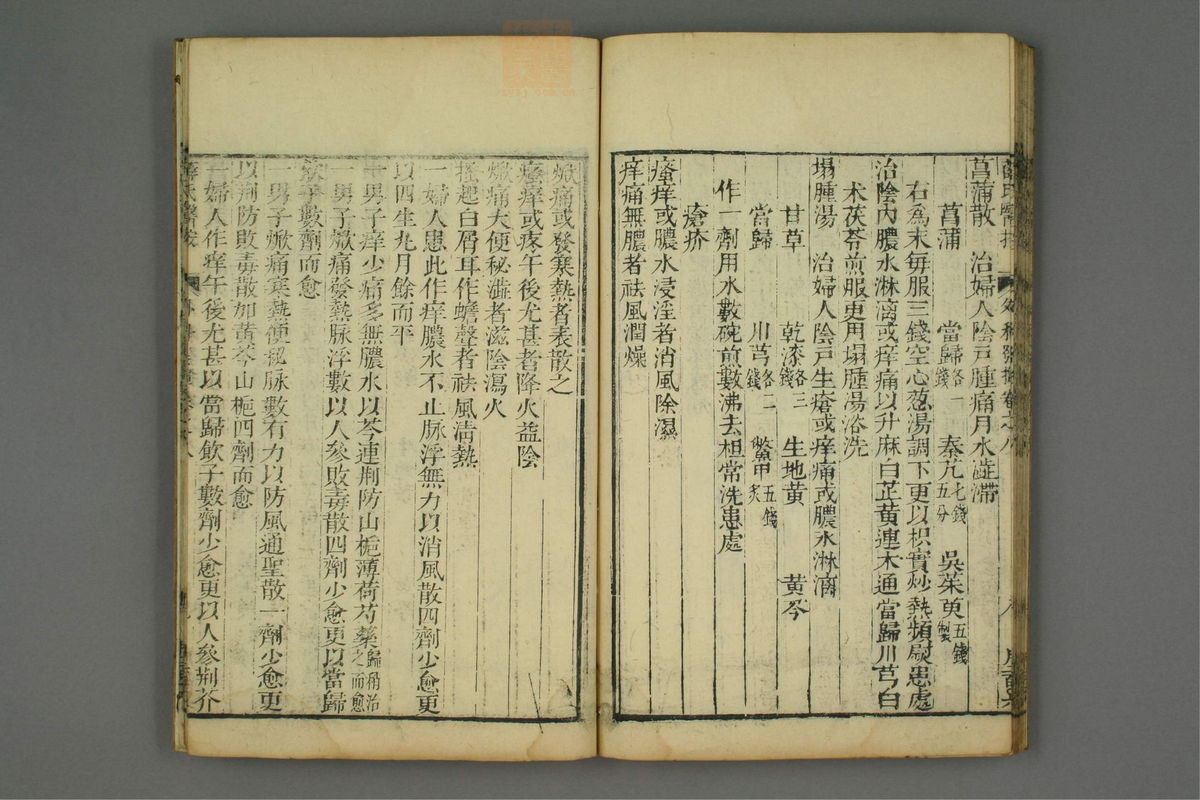 菖蒲散　治婦人陰戸腫痛月水澁滯
菖蒲　當歸各一錢　秦艽七錢五分　吳茱萸五錢製
右爲末毎服三錢空心葱湯調下更以枳實炒熱頻熨患處
治陰内膿水淋漓或痒痛以升麻白芷黄連木通當歸川芎白
术茯苓煎服更用塌腫湯浴洗
塌腫湯　治婦人陰戸生瘡或痒痛或膿水淋漓
甘草　乾漆各三錢　生地黄　黄芩
當歸　川芎各二錢　鱉甲五錢炙
作一劑用水數碗煎數沸去柤常洗患處
瘡疥
瘙痒或膿水浸淫者消風除濕
痒痛無膿者祛風潤燥
焮痛或發寒熱者表散之
瘙痒或疼午後尤甚者降火益陰
焮痛大便秘澁者滋陰瀉火
搔起白屑耳作蟬聲者祛風淸熱
一婦人患此作痒膿水不止脉浮無力以消風散四劑少愈更
以四生丸月餘而平
一男子痒少痛多無膿水以芩連荆防山梔薄荷芍藥歸稍治之而愈
一男子焮痛發熱脉浮數以人參敗毒散四劑少愈更以當歸
飮子數劑而愈
一男子焮痛寒熱便秘脉數有力以防風通聖散一劑少愈更
以荆防敗毒散加黄芩山梔四劑而愈
一婦人作痒午後尤甚以當歸飮子數劑少愈更以人參荆芥
薛氏醫按